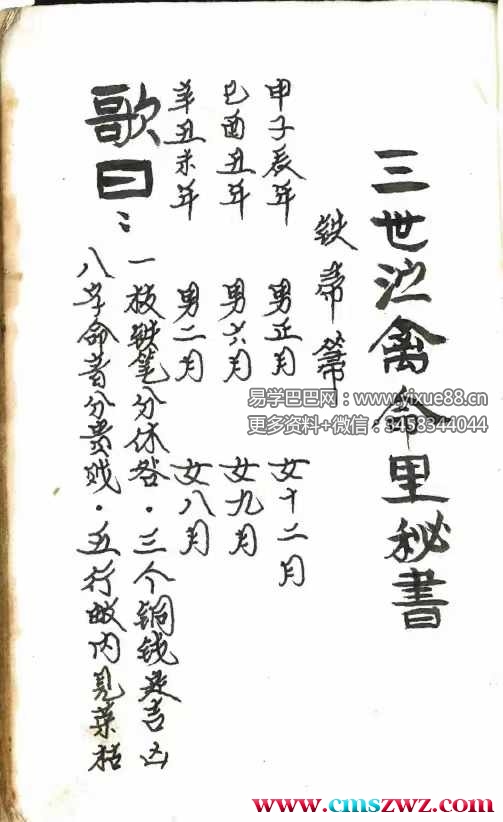 三世禽命里秘書
铁帚箒
甲子辰年 男正月 女十二月
巳酉丑年 男六月 女九月
辛丑未年 男二月 女八月
歌曰：
一枝铁笔分休咎·三个铜钱定吉凶
八字命分贵贱·五行数内見荣枯
易学巴巴网：www.yixue88.cn
更多资料+微信：3458344044
www.cmszwz.com